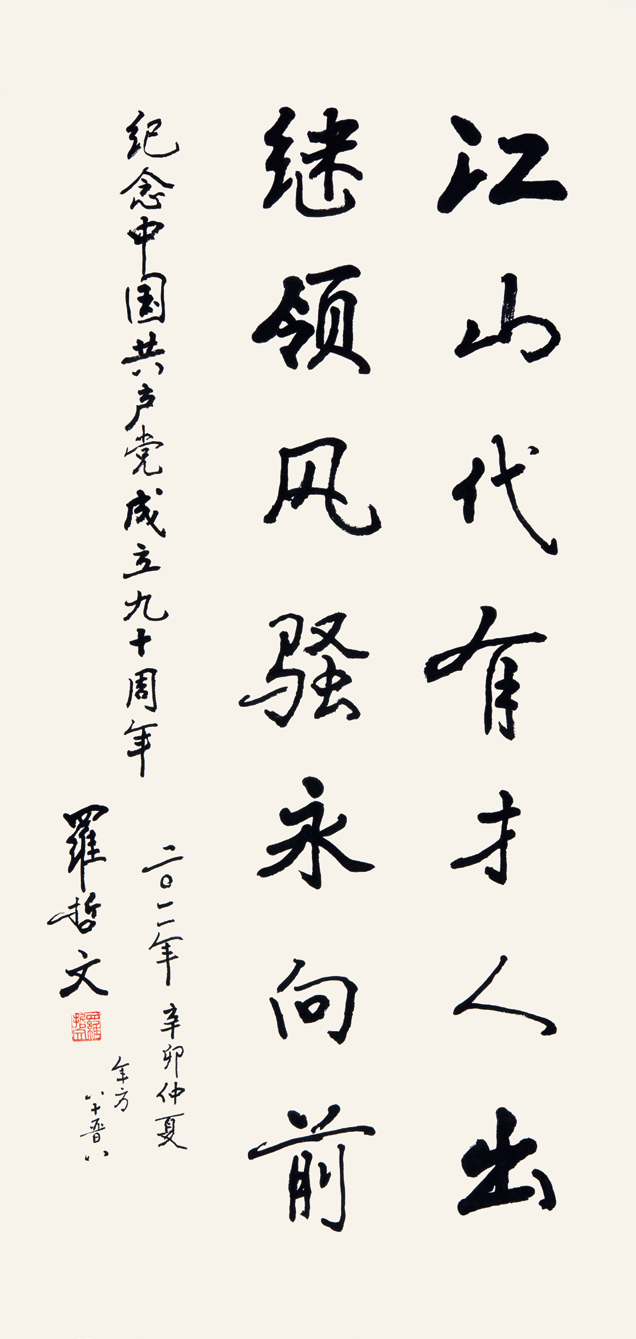 江山代有才人出
继领风骚永向前
纪念中国共产党成立九十周年
二〇一一年 辛卯仲夏
羅哲文
年方
八十晋八